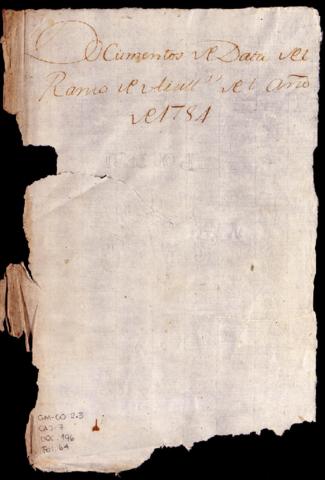 Documentos de Data del
Ramo de del Año
de 1781
GM-CO 2.3
CAJ-7
DOC. 196
Fol. 64